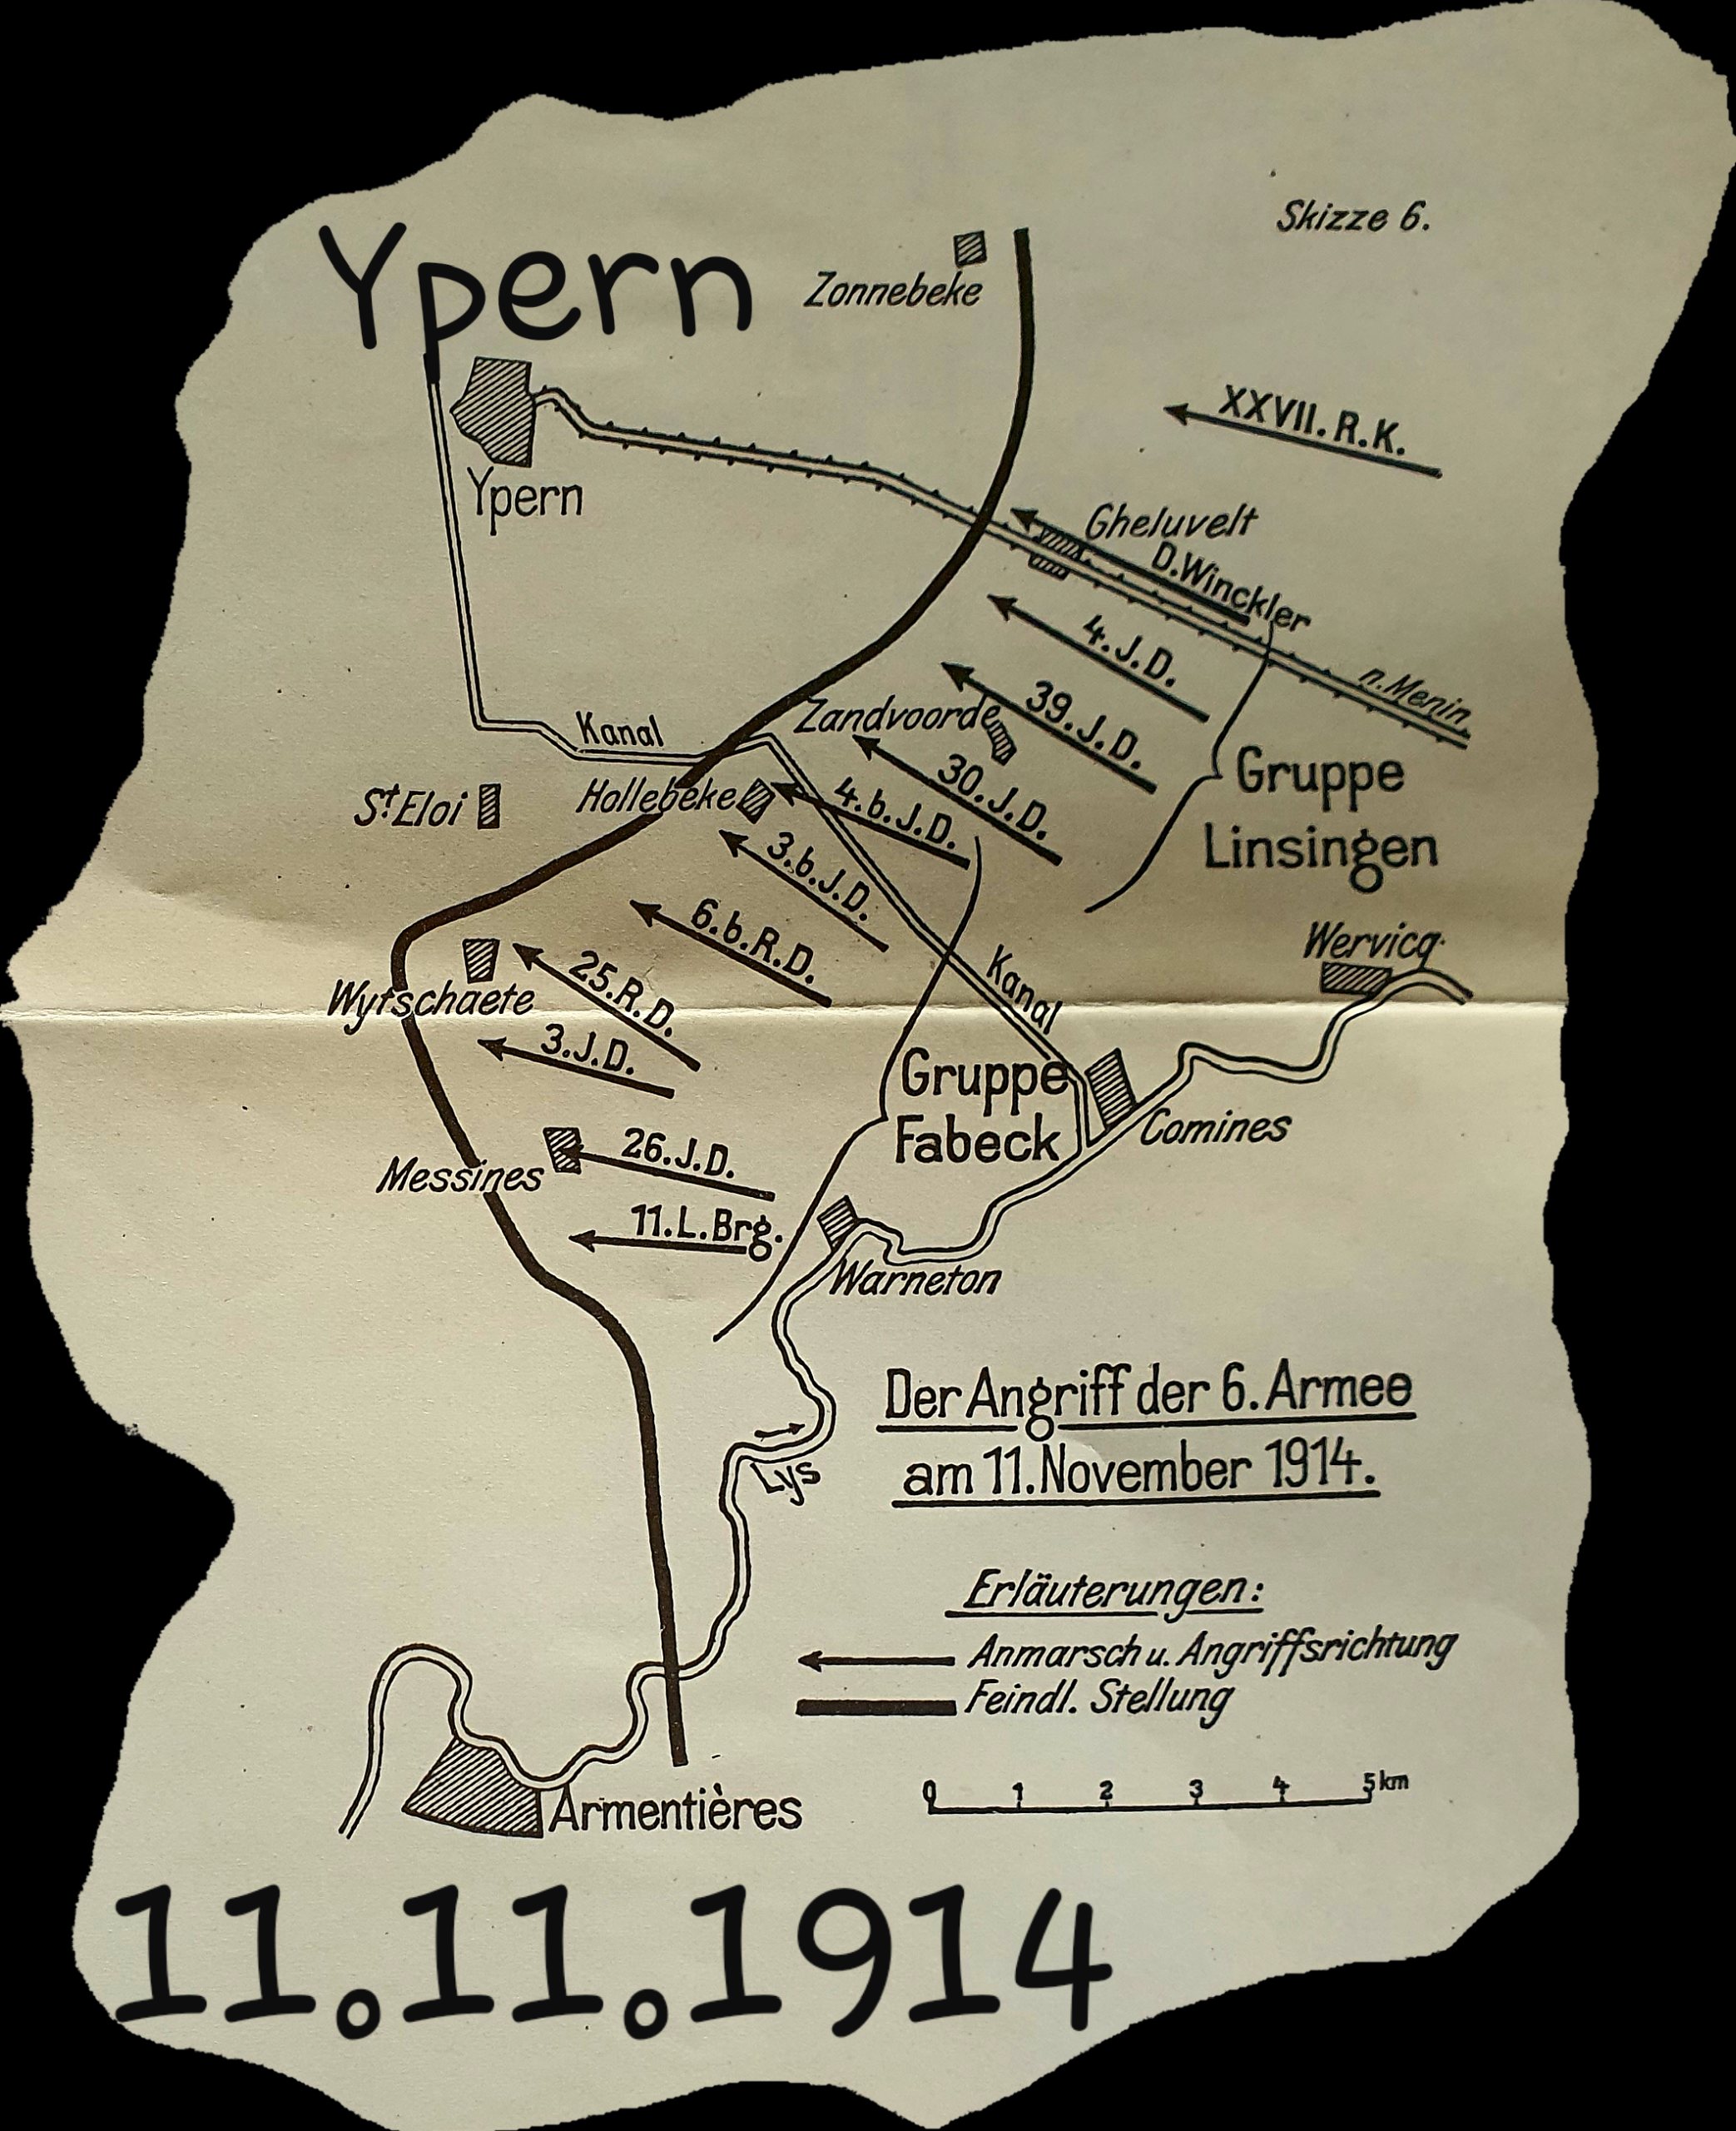 Skizze 6.
Ypern
Zonnebeke
XXVII. R. K.
Ypern
Gheluvelt
D. Winckler
4. J. D.
n. Menin
39. J. D.
Zandvoorde
Kanal
Gruppe
Linsingen
30. J. D.
St. Eloi
Hollebeke
4. b. J. D.
3. b. J. D.
6. b. R. D.
Wervicq
Kanal
25. R. D.
Wytschaete
3. J. D.
Gruppe
Fabeck
Comines
26. J. D.
Messines
11. L. Brg.
Warneton
Der Angriff der 6. Armee
am 11. November 1914.
Lys
Erläuterungen:
Anmarsch u. Angriffsrichtung
Feindl. Stellung
0 1 2 3 4 5 km
Armentières
11.11.1914